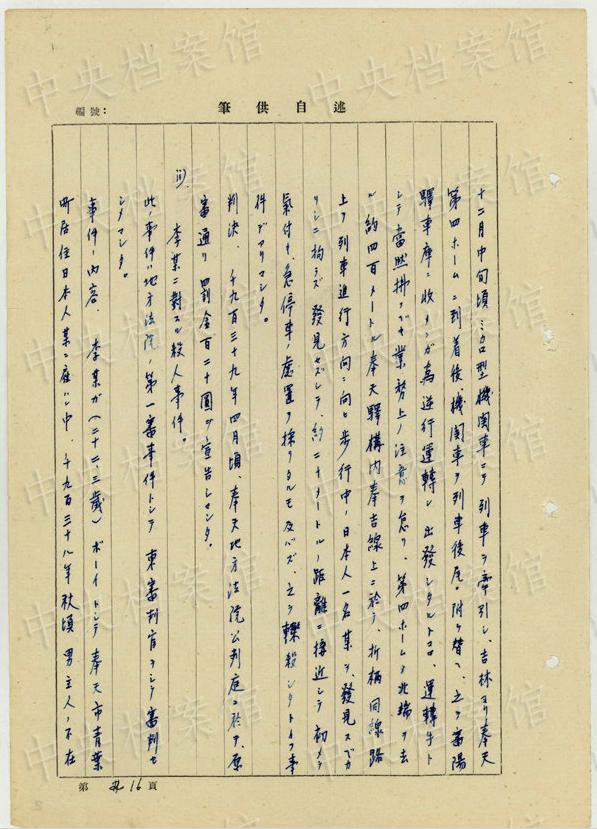 筆供自述
編號:
十二月中旬頃ミカロ型機関車ニテ列車ヲ牽引シ、吉林ヨリ奉天
第四ホームニ到着後、機関車ヲ列車後尾ニ附ケ替ヘ、之ヲ審陽
驛車庫ニ收メンガ為逆行運轉シ出發シタルトコロ、運轉手ト
シテ當然拂フベキ業務上ノ注意ヲ怠リ、第四ホームヲ北端ヲ去
ル約四百メートル奉天驛構内奉吉線上ニ於テ、折柄同線路
上ヲ列車進行方向ニ向ヒ歩行中ノ日本人一名某ヲ、發見スベカ
リシニ拘ラズ發見セズシテ、約二十メートルノ距離ニ接近シテ初メテ
氣付キ、急停車ノ處置ヲ採リタルモ及バズ、之ヲ轢殺シタトイフ事
件デアリマシタ。
判決、千九百三十九年四月頃、奉天地方法院公判庭ニ於テ、原
審通リ罰金百二十圓ヲ宣告シマシタ。
(3)、李某ニ對スル殺人事件。
此ノ事件ハ地方法院ノ第一審事件トシテ東審判官ヲシテ審判セ
シメマシタ。
事件ノ内容、李某ガ(二十二、三歳)ボーイトシテ奉天市青葉
町居住日本人某ニ雇ハレ中、千九百三十八年秋頃男主人ノ不在
第 16 頁
中央档案馆